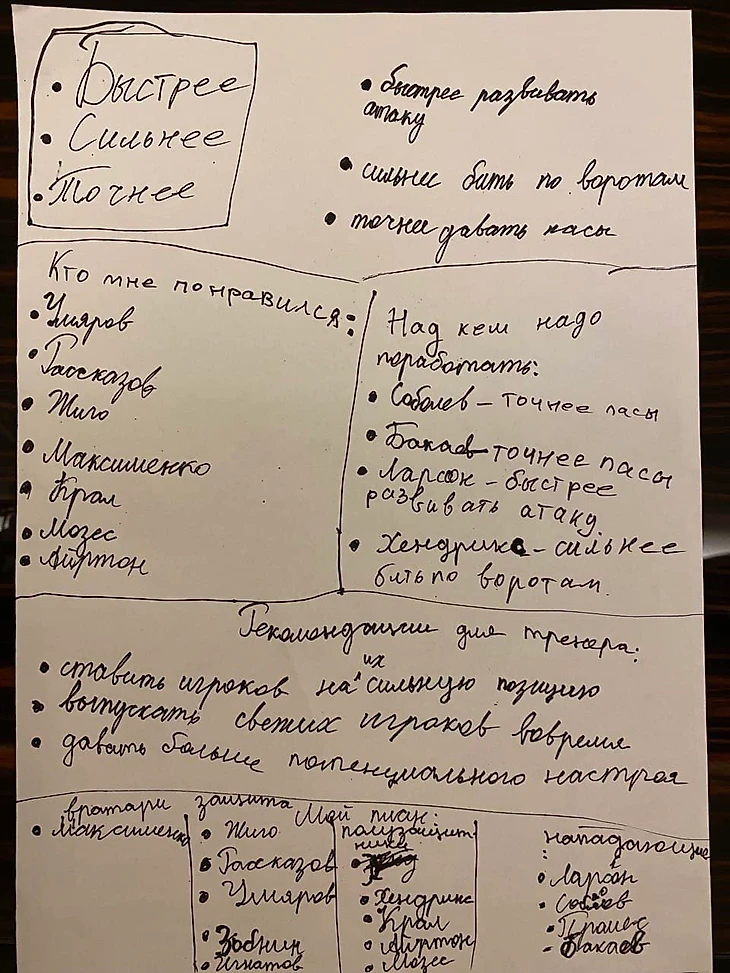 • Быстрее
• Сильнее
• Точнее
• быстрее развивать
атаку
• сильнее бить по воротам
• точнее давать пасы
Кто мне понравился:
• Умяров
• Рассказов
• Жиго
• Максименко
• Крал
• Мозес
• Айртон
Над кем надо
поработать:
• Соболев – точнее пасы
• Бакаев – точнее пасы
• Ларсон – быстрее
развивать атаку.
• Хендрикс – сильнее
бить по воротам.
Рекомендации для тренера:
• ставить игроков на их сильную позицию
• выпускать свежих игроков вовремя
• давать больше потенциального настроя
Мой план:
вратари
• Максименко
защита
• Жиго
• Рассказов
• Умяров
• Зобнин
• Игнатов
полузащит
ники
• Хендрикс
• Крал
• Айртон
• Мозес
нападающие
:
• Ларсон
• Соболев
• Промес
• Бакаев